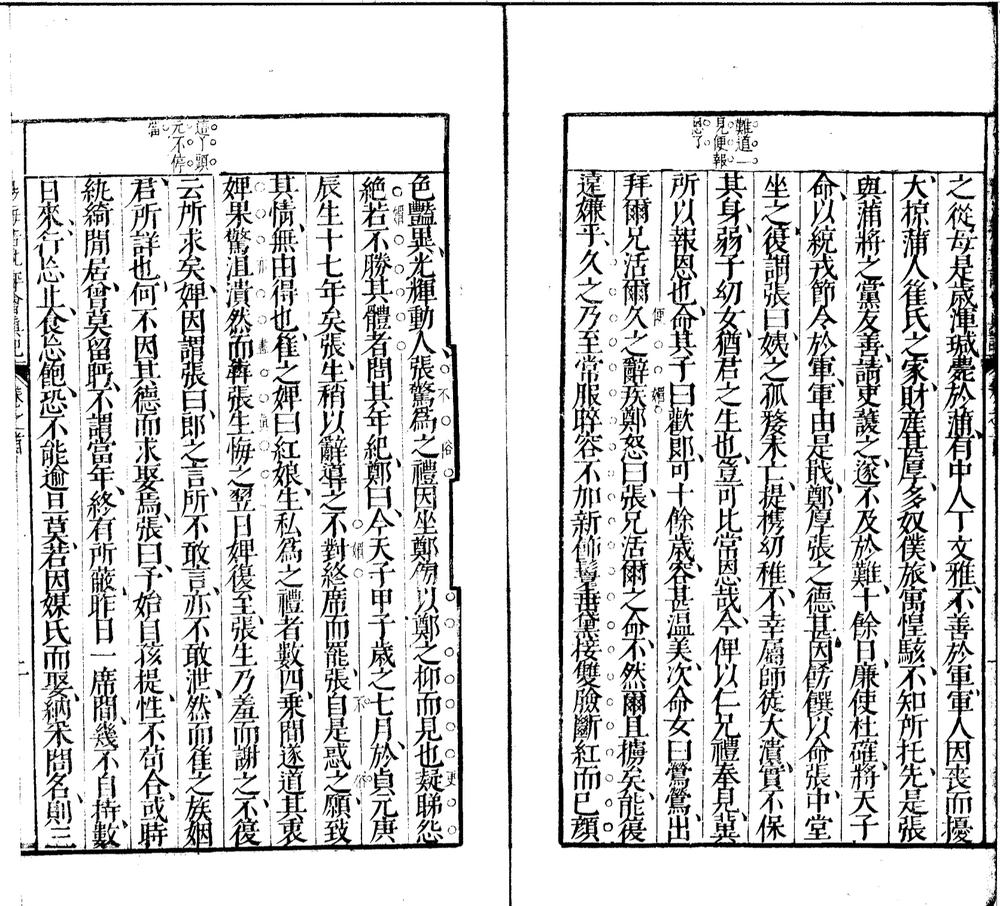 之從母是歲渾瑊薨於蒲有中人丁文雅不善於軍軍人因喪而擾
大掠蒲人崔氏之家財產甚厚多奴僕旅寓惶駭不知所托先是張
與蒲將之黨友善請吏護之遂不及於難十餘日廉使杜確將天子
命以統戎節令於軍軍由是戢鄭厚張之德甚因飭饌以命張中堂
坐之復謂張曰姨之孤嫠未亡提攜幼稚不幸屬師徒大潰實不保
其身弱子幼女猶君之生也豈可比常恩哉今俾以仁兄禮奉見冀
所以報恩也命其子曰歡郎可十餘歲容甚溫美次命女曰鶯鶯出
拜爾兄活爾久之辭疾鄭怒曰張兄活爾之命不然爾且擄矣能復
遠嫌乎久之乃至常服睟容不加新飾鬟垂黛接雙臉斷紅而已顏
難道一
見便報
恩了
便媚
色豔異光輝動人張驚為之禮因坐鄭傍以鄭之抑而見也凝睇怨
絕若不勝其體者問其年紀鄭曰今天子甲子歲之七月於貞元庚
辰生十七年矣張生稍以辭導之不對終席而罷張自是惑之願致
其情無由得也崔之婢曰紅娘生私為之禮者數四乗間遂道其衷
婢果驚沮潰然而犇張生悔之翌日婢復至張生乃羞而謝之不復
云所求矣婢因謂張曰郎之言所不敢言亦不敢泄然而崔之族姻
君所詳也何不因其德而求娶焉張曰予始自孩提性不苟合或時
紈綺閒居曾莫留盻不謂當年終有所蔽昨日一席間幾不自持數
日來行忘止食忘飽恐不能逾旦莫若因媒氏而娶納采問名則三
這丫頭
元不停
當
不俗
媚
媚
更
不俗
亦盡真